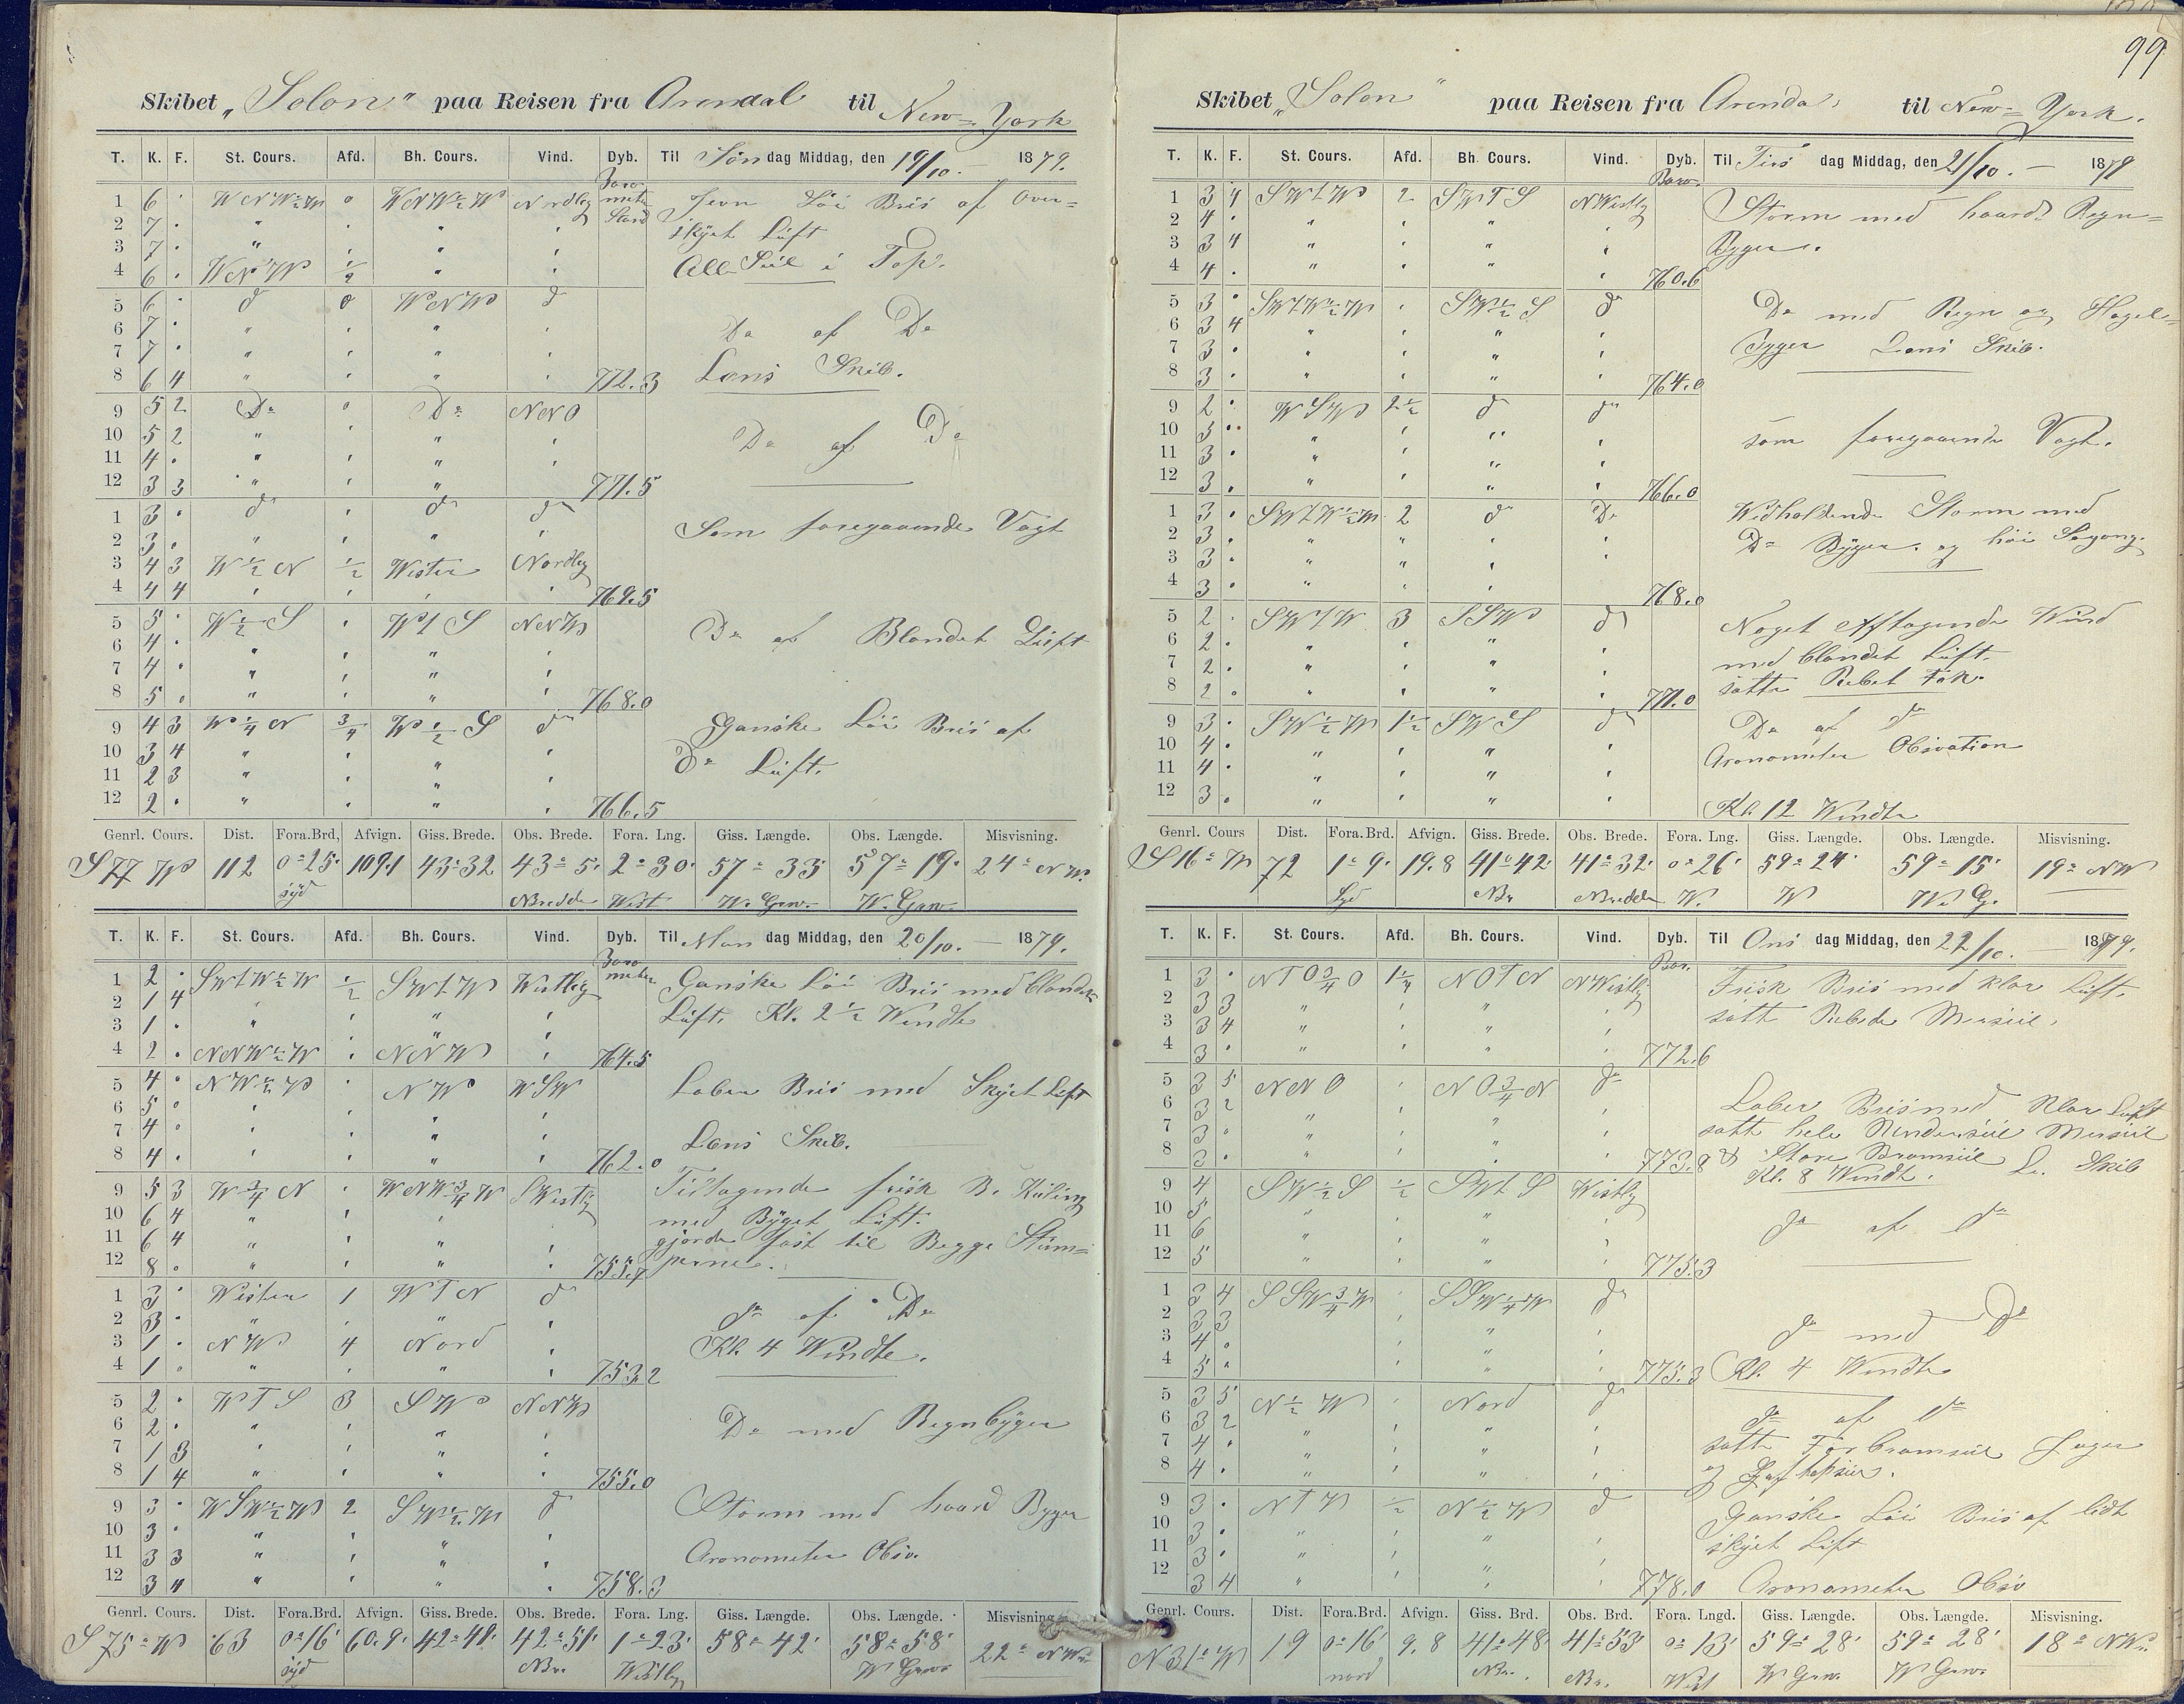 99
Skibet „Solon“ paa Reisen fra Arendal til New=York
T. K. F. St. Cours. Afd. Bh. Cours. Vind. Dyb. Til Søndag Middag, den 19/10. — 1879.
Barometer Stand
1 6 · WNW½W 0 WNW½W Nordlig Jevn Löi Bris af Over=
2 7 · " " " " skyet Luft
3 7 · " " " "
4 6 · WNW ½ " " Alle Seil i Top.
5 6 · do 0 WNW do
6 7 · " " " " Do af Do
7 7 · " " " "
8 6 4 " " " " 772.3 Lens Skib.
9 5 2 Do 0 Do NNO
10 5 2 " " " " Do af Do
11 4 · " " " "
12 3 3 " " " " 771.5
1 3 · do " do do Som foregaaende Vagt
2 3 · " " " "
3 4 3 W½N ½ Westen Nordlig
4 4 4 " " " " 769.5
5 5 · W½S " WtS NNW Do af Blandet Luft
6 4 · " " " "
7 4 · " " " "
8 5 · " " " " 768.0
9 4 3 W¼N ¾ W½S do Ganske Löi Bris af
10 3 4 " " " " Do Luft.
11 2 3 " " " "
12 2 · " " " " 766.5
Genrl. Cours. Dist. Fora.Brd, Afvign. Giss. Brede. Obs. Brede. Fora. Lng. Giss. Længde. Obs. Længde. Misvisning.
S 77 W 112 0°25' 109.1 43°32 43°5' 2°30' 57°33' 57°19' 24° NW.
syd NBredde West W. Grw. W. Grw.
T. K. F. St. Cours. Afd. Bh. Cours. Vind. Dyb. Til Mandag Middag, den 20/10. — 1879.
Barometer
1 2 · SWtW½W ½ SWtW Westlig Ganske Löi Bris med blandet
2 1 4 " " " " Luft. Kl. 2½ Wendte
3 1 · " " " "
4 2 · NNW½W " NNW " 764.5
5 4 · NW½W " NW WSW Laber Bris med Skyet Luft
6 5 · " " " "
7 4 · " " " " Lens Skib.
8 4 · " " " " 762.0
9 5 3 W¾N " WNW¾W SWestlig Tiltagende frisk B. Kuling
10 6 4 " " " " med Byget Luft.
11 6 4 " " " " gjorde fast til Begge Stum=
12 8 · " " " " 755.7 perne.
1 3 · Westen 1 WTN do
2 3 · " " " " do af Do
3 1 · NW 4 Nord " Kl. 4 Wendte.
4 1 · " " " " 753.2
5 2 · WTS 3 SW NNW
6 2 · " " " " Do med Regnbyger
7 1 3 " " " "
8 1 4 " " " " 755.0
9 3 · WSW½W 2 SW½W do Storm med haard Byger
10 3 · " " " "
11 3 3 " " " " Cronometer Obsv.
12 3 4 " " " " 758.3
Genrl. Cours. Dist. Fora.Brd. Afvign. Giss. Brede. Obs. Brede. Fora. Lng. Giss. Længde. Obs. Længde. Misvisning.
S 75° W 63 0°16' 60.9' 42°48' 42°51' 1°23' 58°42' 58°58' 22° NW
syd NBr. Westlig W Grw.
Skibet „Solon“ paa Reisen fra Arendal til New=York.
T. K. F. St. Cours. Afd. Bh. Cours. Vind. Dyb. Til Tirsdag Middag, den 21/10. — 1879
Baro.
1 3 4 SWtW 2 SWTS NWestlig Storm med haarde Regn=
2 4 · " " " "
3 3 4 " " " " Byger.
4 4 · " " " " 760.6
5 3 · SWtW½W " SW½S do Do med Regn og Hagel=
6 3 4 " " " "
7 3 · " " " " Byger Lens Skib.
8 3 · " " " " 764.0
9 2 · WSW 2½ do do
10 3 · " " " " som foregaaende Vagt.
11 3 · " " " "
12 3 · " " " " 766.0
1 3 · SWtW½W 2 do Do Widholdende Storm med
2 3 · " " " " Do Byger. og höi Söegang.
3 3 · " " " "
4 3 · " " " 768.0
5 2 · SWtW 3 SSW do Noget Afftagende Wind
6 2 · " " " " med blandet Luft.
7 2 · " " " "
8 2 · " " " " 771.0 satte Rebet Fok.
9 3 · SW½W 1½ SWS do Do af do
10 4 · " " " " Cronometer Obsvation
11 4 · " " " "
12 3 · " " " " Kl. 12 Wendte
Genrl. Cours Dist. Fora.Brd. Afvign. Giss. Brede. Obs. Brede. Fora. Lng. Giss. Længde. Obs. Længde. Misvisning.
S 16° W 72 1°9' 19.8 41°42' 41°32' 0°26' 59°24' 59°15' 19° NW
Syd NBr NBredde W. W W. G.
T. K. F. St. Cours. Afd. Bh. Cours. Vind. Dyb. Til Onsdag Middag, den 22/10. — 1879.
Bar.
1 3 · NTO¾O 1¼ NOTN NWestlig Frisk Bris med klar Luft.
2 3 3 " " " " satt Rebede Mersseil.
3 3 4 " " " "
4 3 · " " " " 772.6
5 3 5 NNO " NO¾N do
6 3 2 " " " " Laber Bris med Klar Luft
7 3 · " " " " satt hele Undersseil Mersseil
8 3 · " " " " 773.8 og Store Bramseil L. Skib
Kl. 8 Wendt.
9 4 SW½S ½ SWtS Westlig
10 5 " " " " do af do
11 6 " " " "
12 5 " " " " 775.3
1 3 4 SSW¾W " SSW¼W do
2 3 3 " " " do med Do
3 4 · " " "
4 5 · " " " 775.3 Kl. 4 Wendte
5 3 5 N½W " Nord do do af do
6 3 2 " " " " satte Forbramseil Jager
7 4 · " " " " og Gaftopseil.
8 4 · " " " "
9 3 · NTW ½ N½W do Ganske Löi Bris af lidt
10 3 · " " " " skyet Luft
11 3 · " " " "
12 3 4 " " " " 778.0 Cronometer Obsv
Genrl. Cours. Dist. Fora.Brd. Afvign. Giss. Brd. Obs. Brd. Fora. Lngd. Giss. Længde. Obs. Længde. Misvisning.
N 31° W 19 0°16' 9.8 41°48' 41°53' 0°13' 59°28' 59°28' 18° NW
nord NBr. NBr. West W Grw. W Grw.